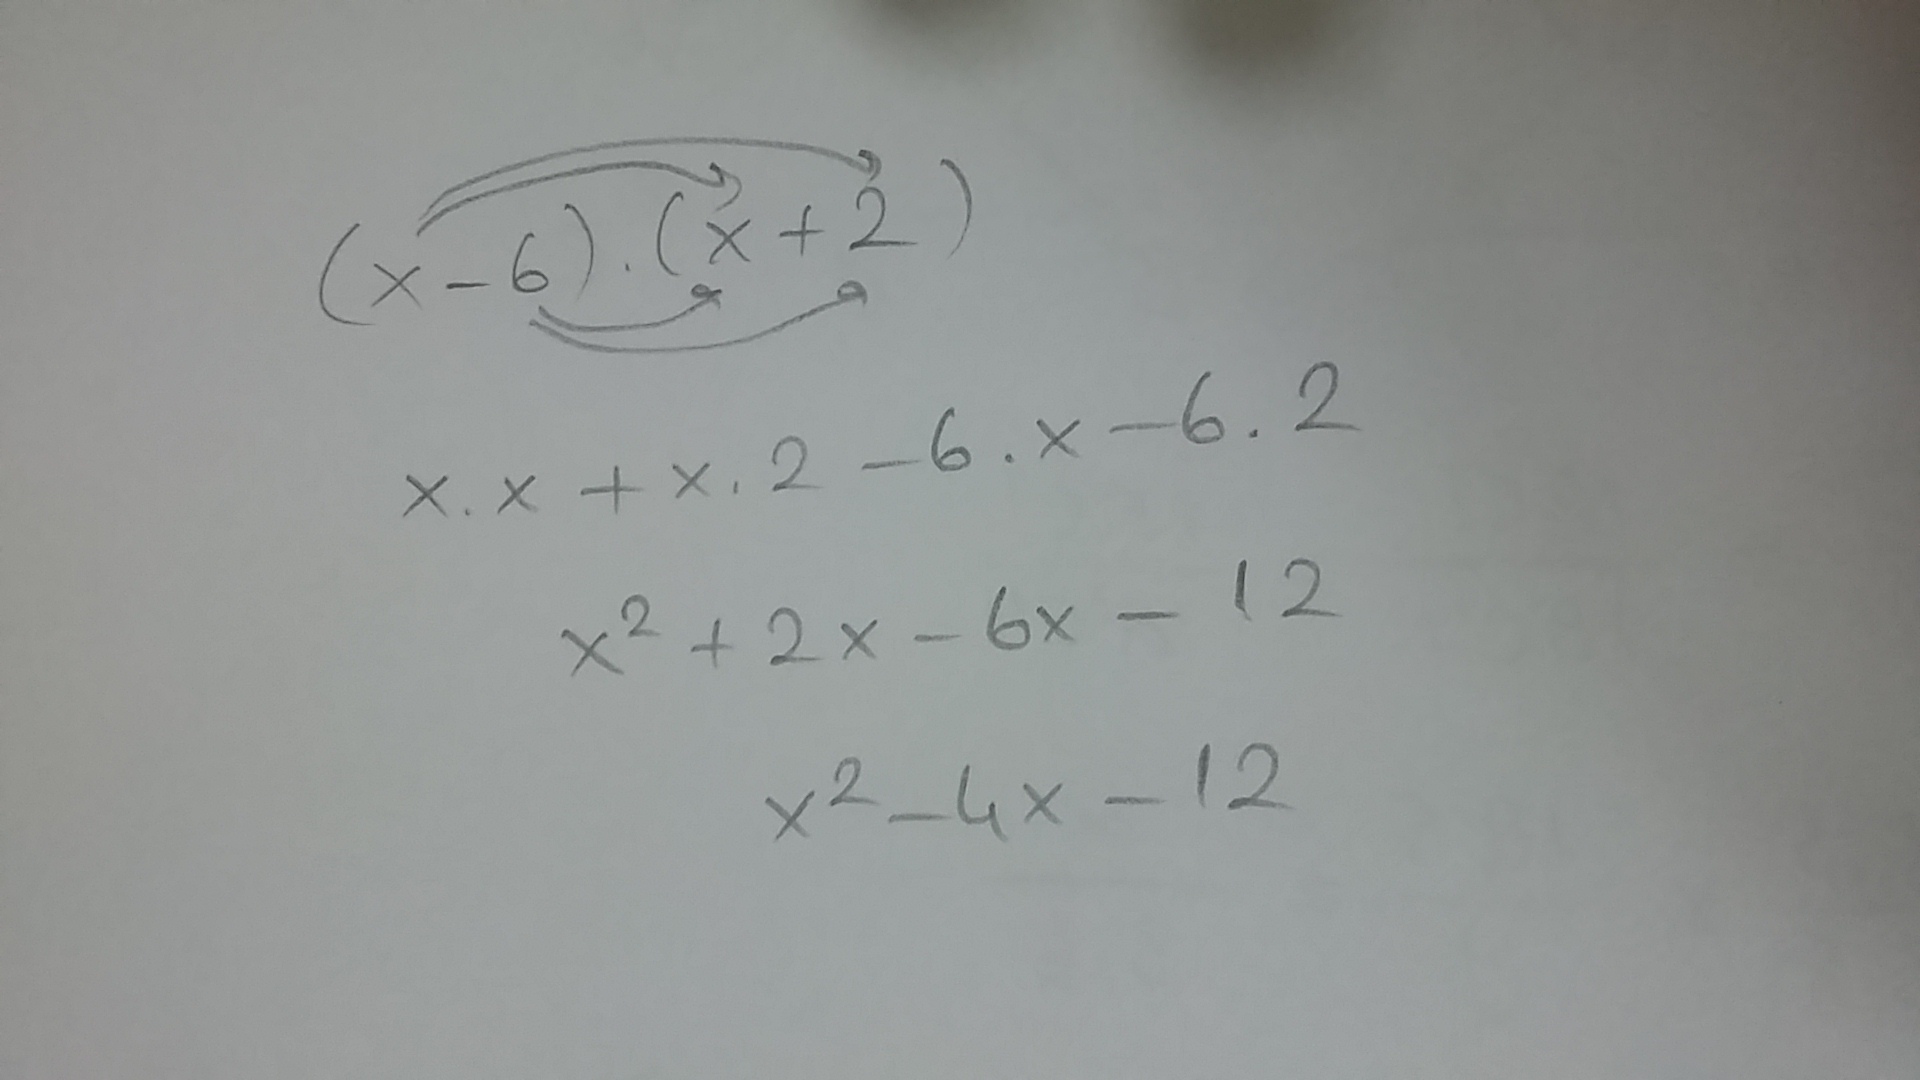 (x-6).(x+2)
x.x+x.2-6.x-6.2
x²+2x-6x-12
x²-4x-12